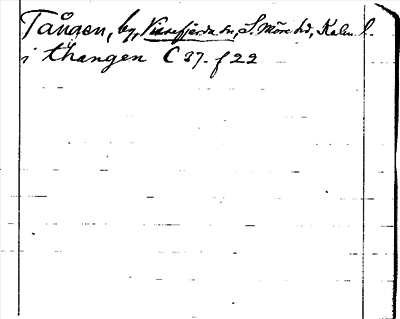 Tången, by, Vissefjärda sn, S. Möre hd, Kalm. l.
i thangen C 37. f 22